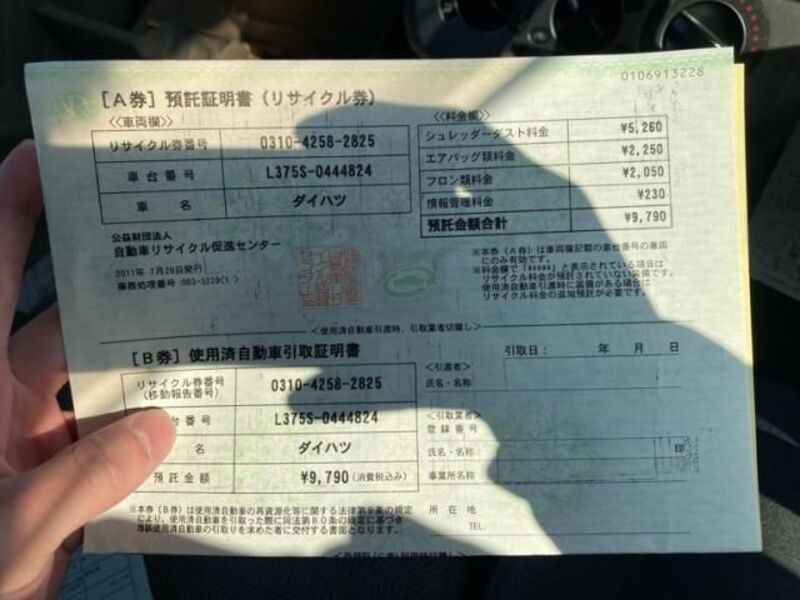 0106913228
[A券] 預託証明書 (リサイクル券)
<<車両欄>>
リサイクル券番号 0310-4258-2825
車台番号 L375S-0444824
車名 ダイハツ
<<料金欄>>
シュレッダーダスト料金 ¥5,260
エアバッグ類料金 ¥2,250
フロン類料金 ¥2,050
情報管理料金 ¥230
預託金額合計 ¥9,790
公益財団法人
自動車リサイクル促進センター
2011年 7月20日発行
※本券(A券)は車両欄記載の車台番号の車両
にのみ有効です。
※料金欄で「*****」と表示されている項目は
リサイクル料金が預託されていない装備です。
使用済自動車引渡時に装備がある場合は
リサイクル料金の追加預託が必要です。
<使用済自動車引渡時、引取業者切離し>
[B券] 使用済自動車引取証明書
リサイクル券番号
(移動報告番号) 0310-4258-2825
台番号 L375S-0444824
名 ダイハツ
預託金額 ¥9,790(消費税込み)
※本券(B券)は使用済自動車の再資源化等に関する法律第9条の規定
により、使用済自動車を引取った際に同法第80条の規定に基づき
当該使用済自動車の引取りを求めた者に交付する書面となります。
引取日: 年 月 日
<引渡者>
氏名・名称
<引取業者>
登録番号
氏名・名称 印
事業所名称
所在地
TEL